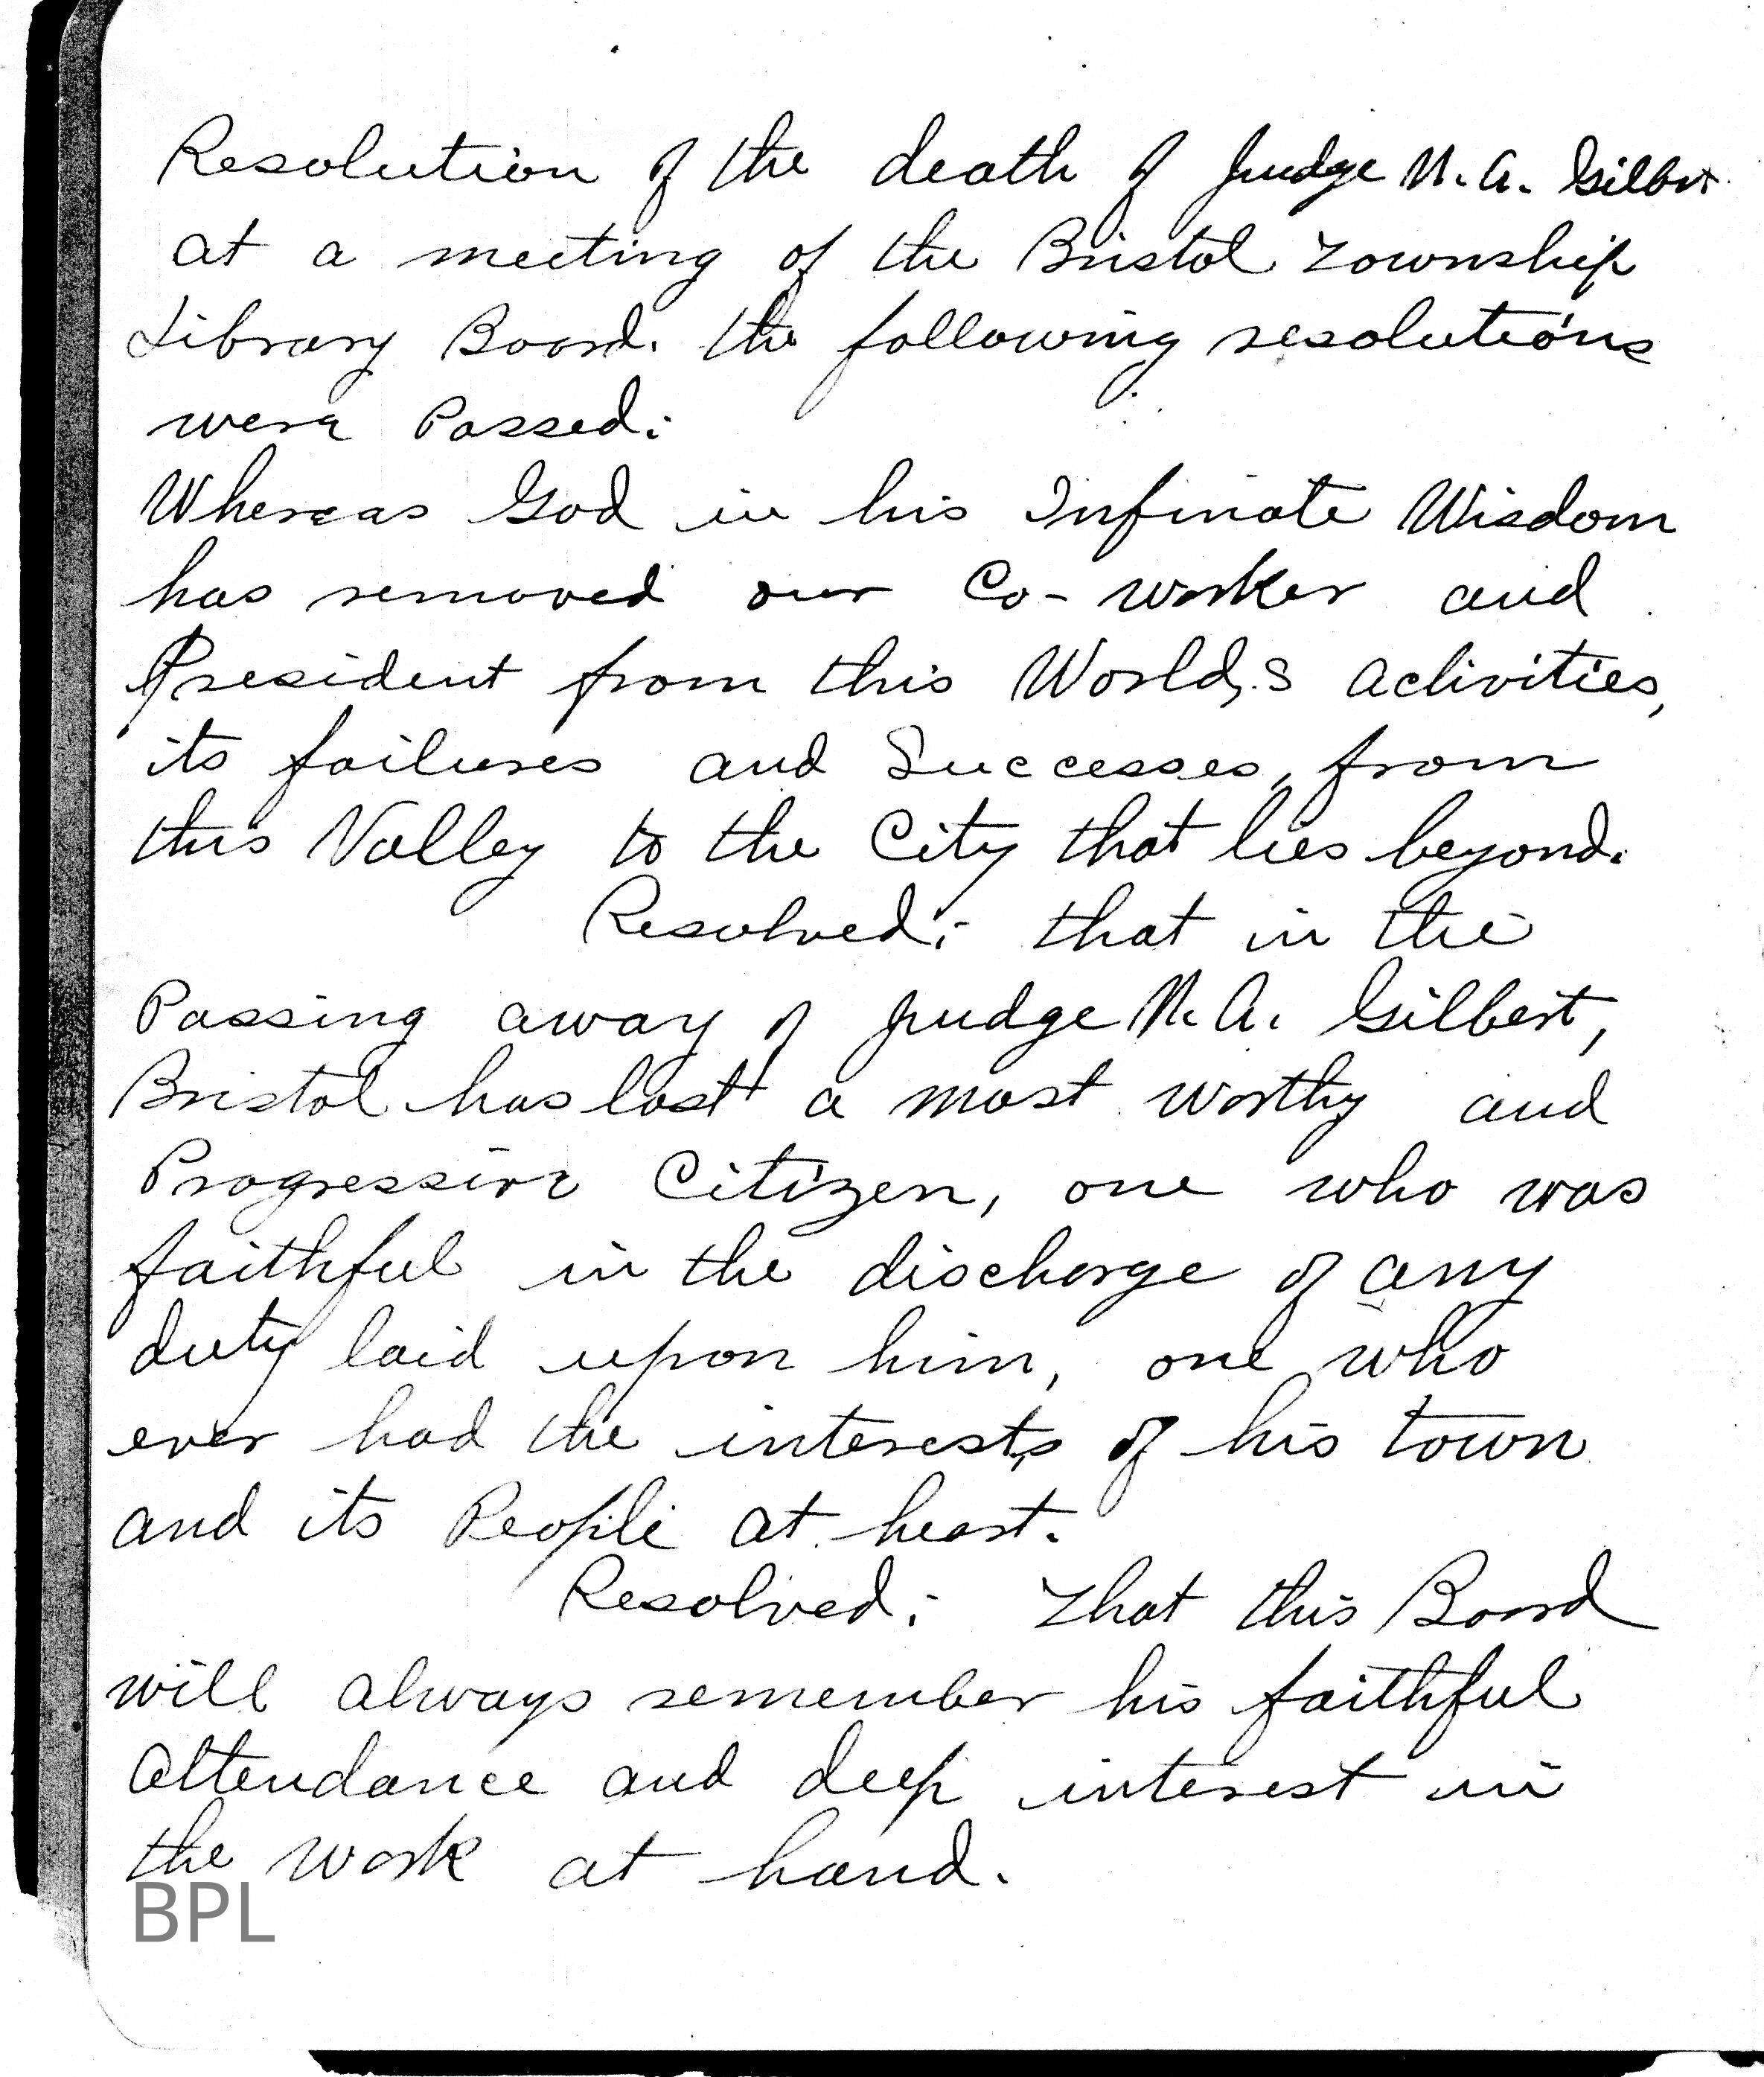 Resolution of the death of Judge N. A. Gilbert
at a meeting of the Bristol Township
Library Board. the following resolutions
were Passed:
Whereas God in his Infinate Wisdom
has removed our Co-worker and
President from this World,s activities,
its failures and Successes, from
this Valley to the City that lies beyond.
Resolved: that in the
Passing away of Judge N. A. Gilbert,
Bristol has lost a most worthy and
Progressive Citizen, one who was
faithful in the discharge of any
duty laid upon him, one who
ever had the interests of his town
and its People at heart.
Resolved: That this Board
will always remember his faithful
attendance and deep interest in
the work at hand.
BPL